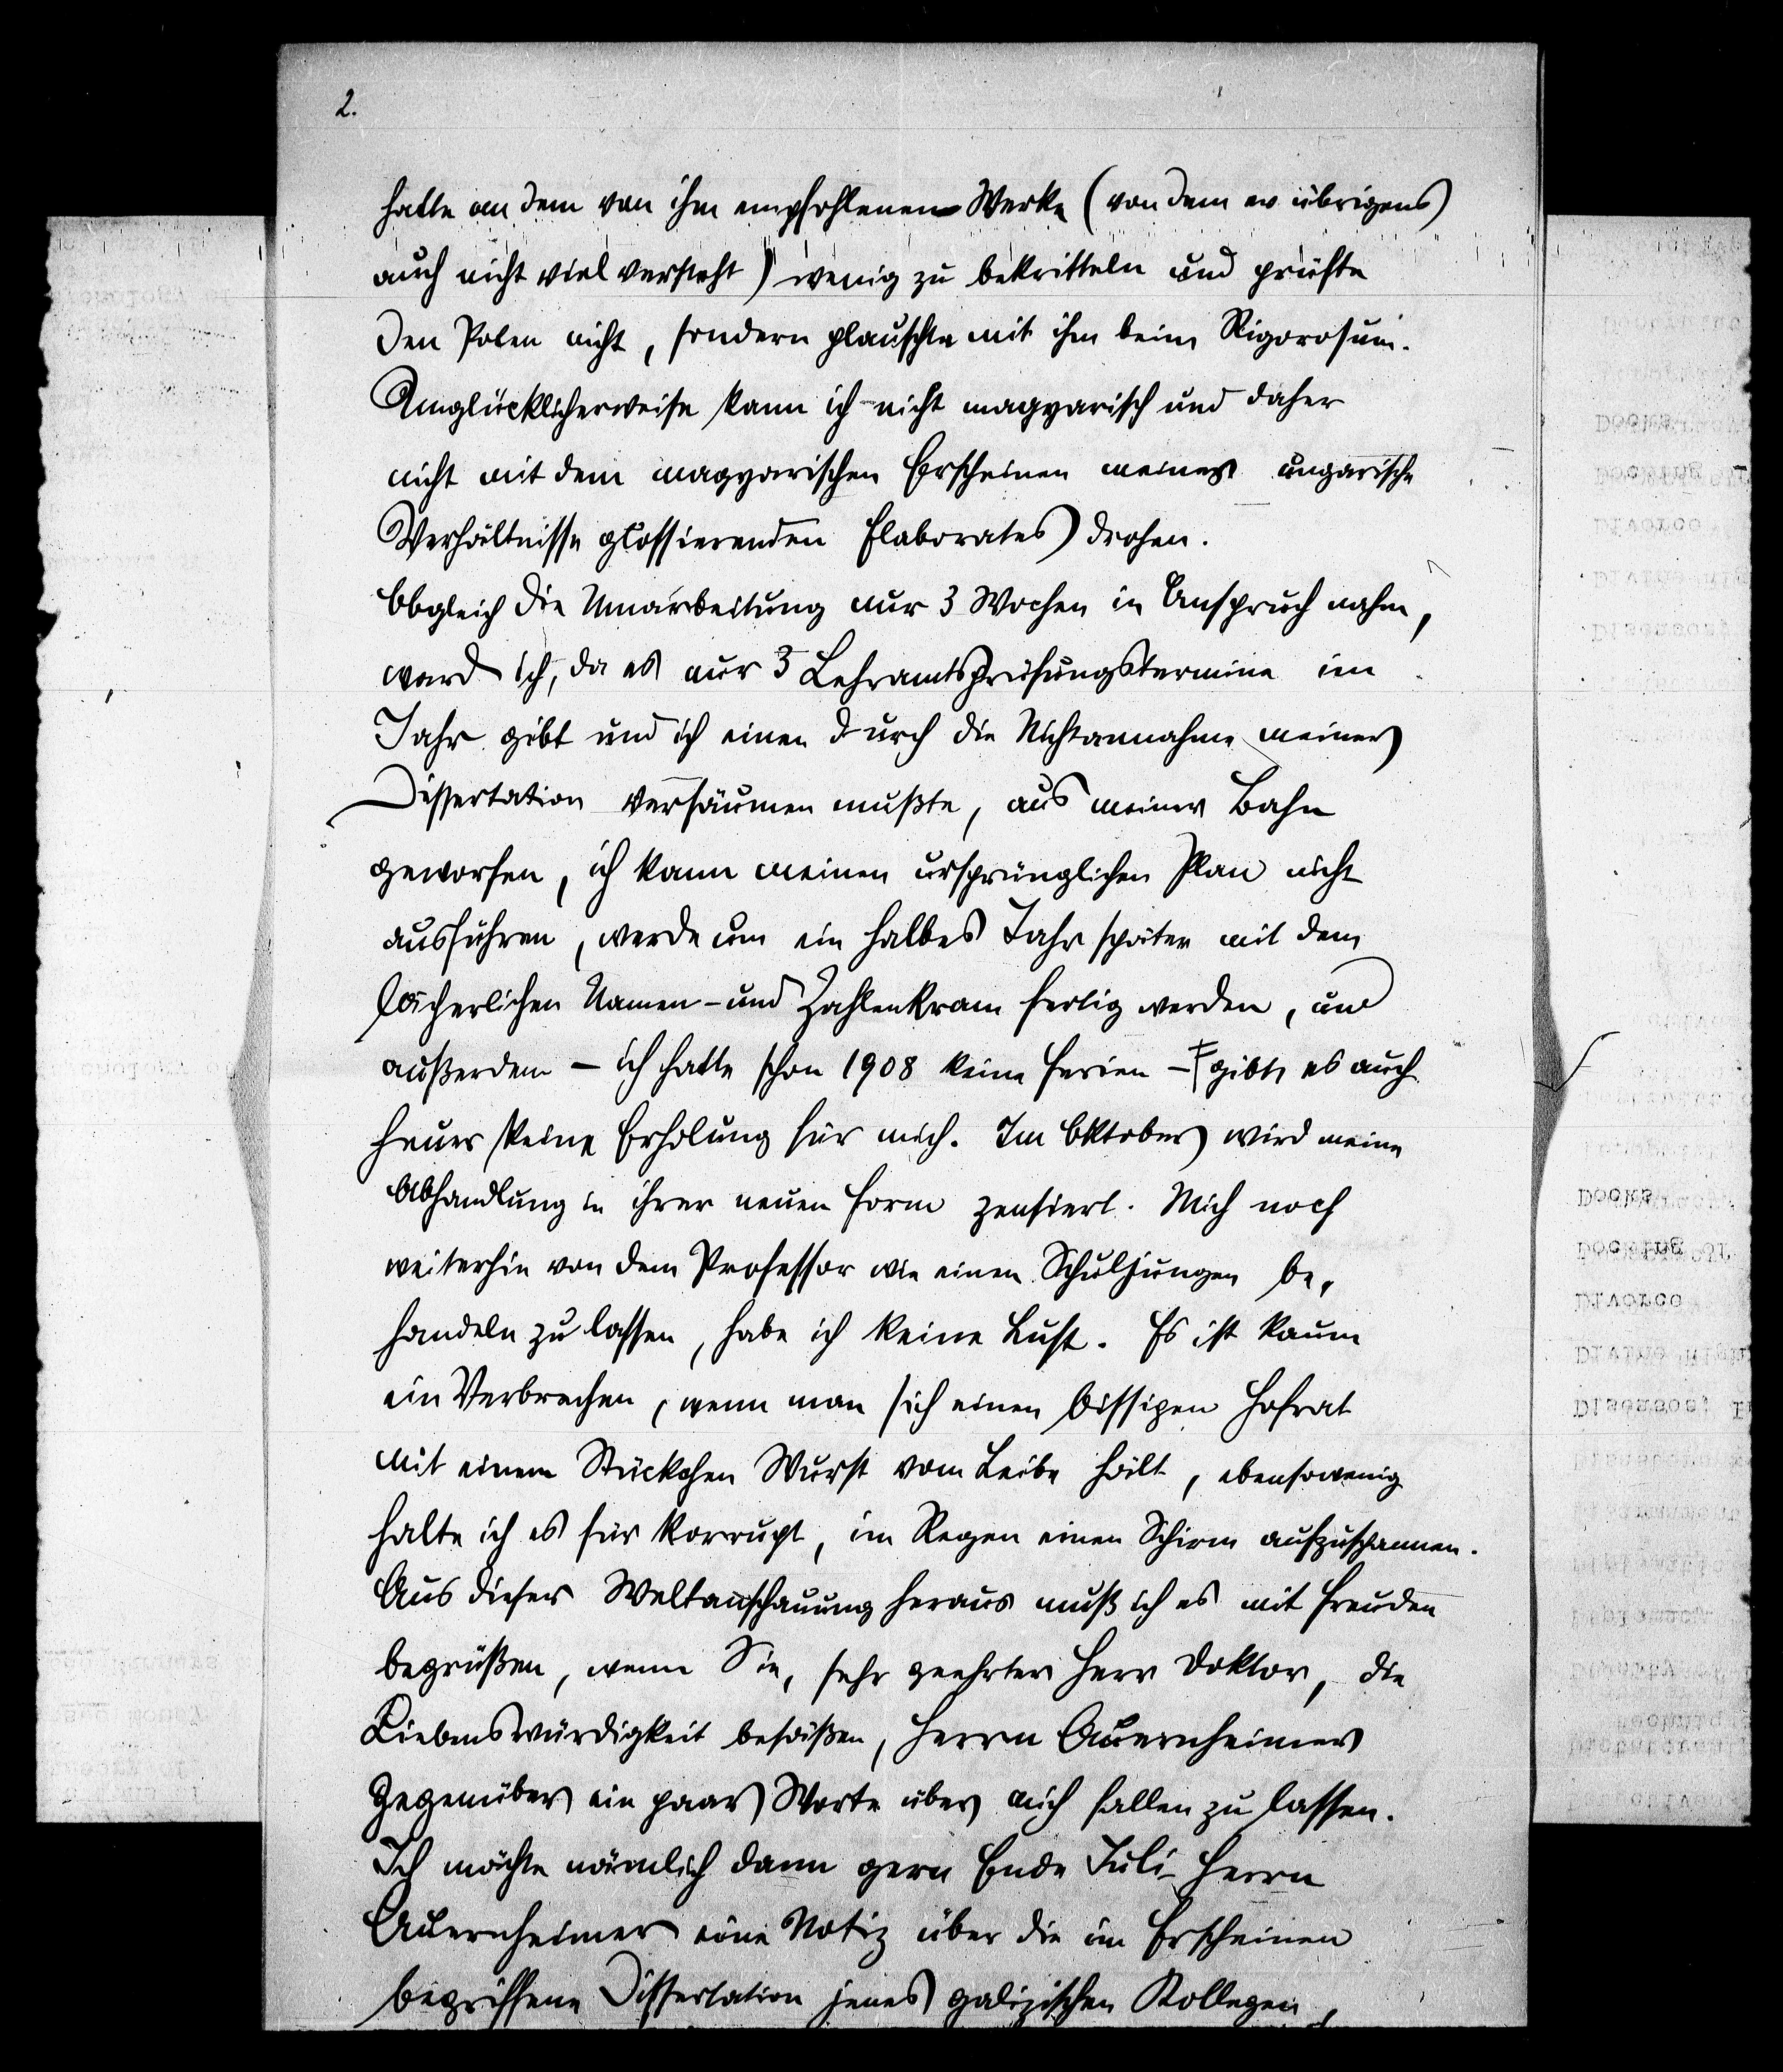 2.
hatte an dem von ihm empfohlenen Werke (von dem er übrigens
auch nicht viel versteht) wenig zu bekritteln und prüfte
den Polen nicht, sondern plauschte mit ihm beim Rigorosum.
Unglücklicherweise kann ich nicht magyarisch und daher
nicht mit dem magyarischen Erscheinen meines ungarische
Verhältnisse glossierenden Elaborates drohen.
Obgleich die Umarbeitung nur 3 Wochen in Anspruch nahm,
ward ich, da es nur 3 Lehramtsprüfungstermine im
Jahr gibt und ich einen durch die Nichtannahme meiner
Dissertation versäumen mußte, aus meiner Bahn
geworfen, ich kann meinen ursprünglichen Plan nicht
ausführen, werde um ein halbes Jahr später mit dem
lächerlichen Namen- und Zahlenkram fertig werden, und
außerdem – ich hatte schon 1908 keine Ferien – gibt es auch
heuer keine Erholung für mich. Im Oktober wird meine
Abhandlung in ihrer neuen Form zensiert. Mich noch
weiterhin von dem Professor wie einen Schuljungen be-
handeln zu lassen, habe ich keine Lust. Es ist kaum
ein Verbrechen, wenn man sich einen bissigen Hofrat
mit einem Stückchen Wurst vom Leibe hält, ebensowenig
halte ich es für korrupt, im Regen einen Schirm aufzuspannen.
Aus dieser Weltanschauung heraus muß ich es mit Freuden
begrüßen, wenn Sie, sehr geehrter Herr Doktor, die
Liebenswürdigkeit besäßen, Herrn Auernheimer
gegenüber ein paar Worte über mich fallen zu lassen.
Ich möchte nämlich dann gern Ende Juli Herrn
Auernheimer eine Notiz über die im Erscheinen
begriffene Dissertation jenes galizischen Kollegen,
Docks
Docking
Divorce
Diseases,
Docks
Docking or
Divorce
Diseases,